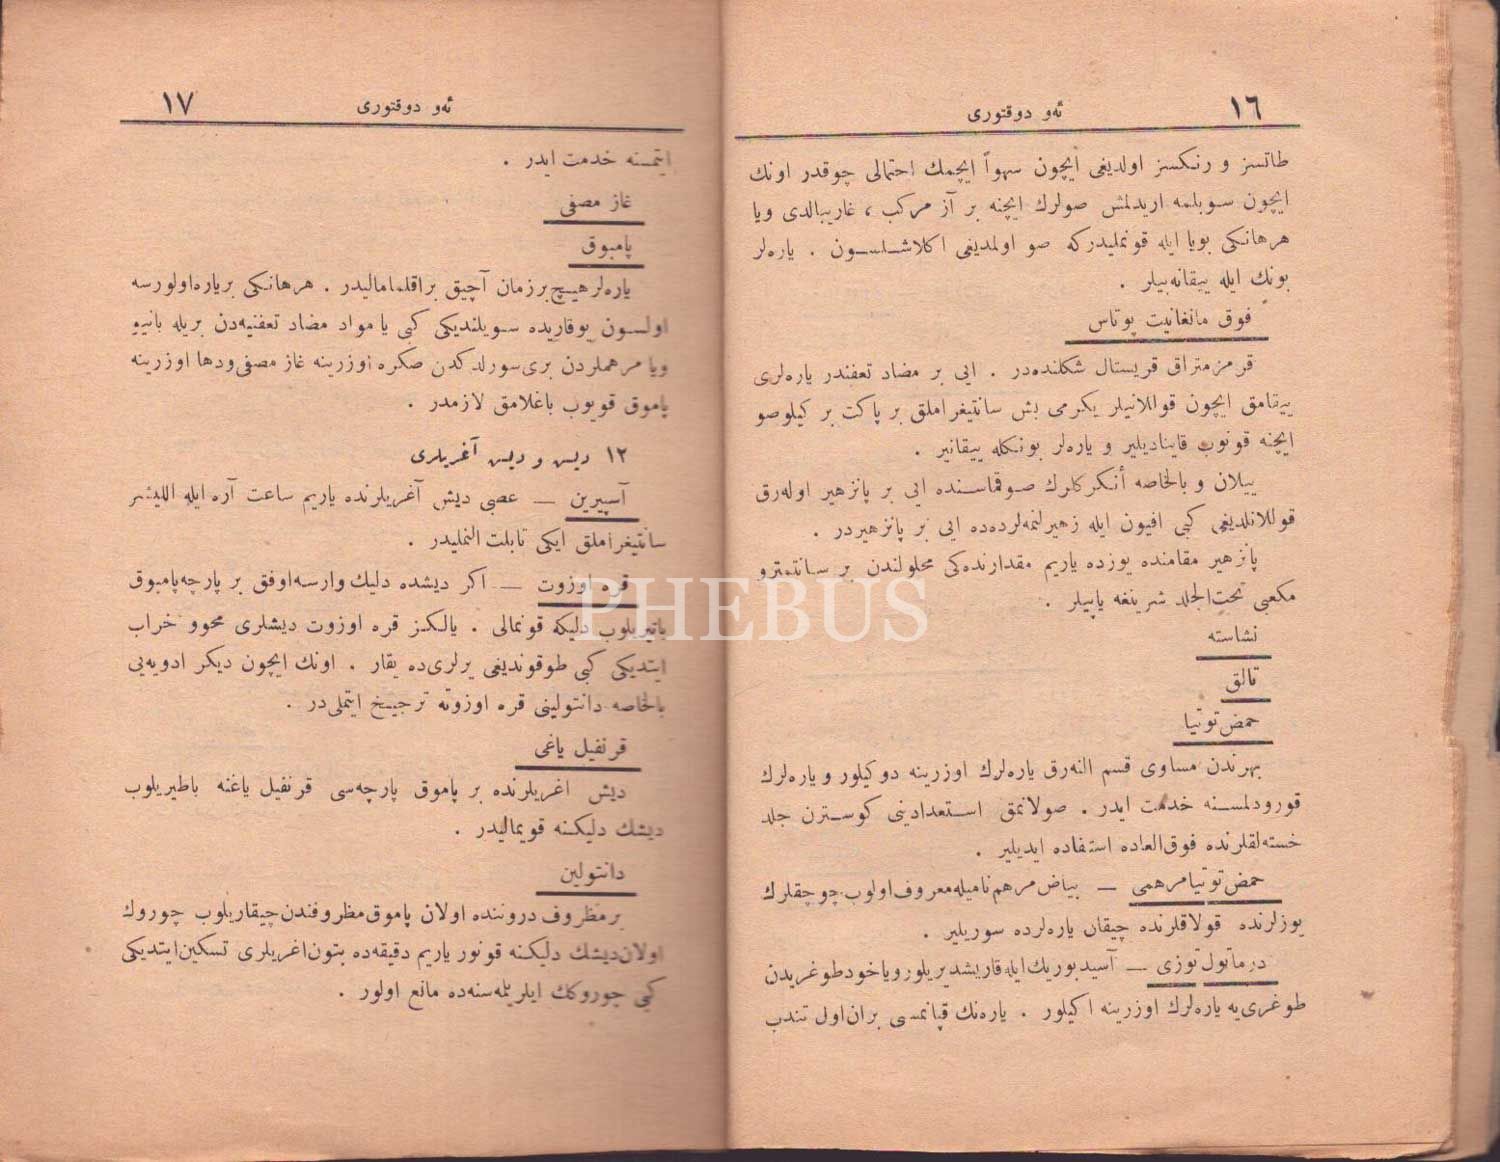 ١٦
ئه‌و دوقتوری
طاتسز و رنكسز اولديغی ايچون سهواً ايچمك احتمالی چوقدر اونك
ايچون سوبلمه اريدلمش صولرك ايچنه بر آز مركب ، غاريبالدی ويا
هرهانكی بويا ايله قونمليدركه صو اولمديغی اكلاشلسون . ياره‌لر
بونك ايله ييقانه‌بيلر .
فوق مانغانيت پوتاس
قرمزمتراق قريستال شكلنده‌در . ايی بر مضاد تعفندر ياره‌لری
ييقامق ايچون قوللانيلر يكرمی بش سانتيغراملق بر پاكت بر كيلوصو
ايچنه قونوب قايناديلير و ياره‌لر بونكله ييقانير .
ييلان و بالخاصه أنكركلرك صوقماسنده ايی بر پانزهير اوله‌رق
قوللانلديغی كبی افيون ايله زهيرلنمه‌لرده‌ده ايی بر پانزهيردر .
پانزهير مقامنده يوزده ياريم مقدارنده‌كی محلولندن بر سانتمترو
مكعبی تحت‌الجلد شرينغه ياپيلر .
نشاسته
تالق
حمض توتيا
بهرندن مساوی قسم النه‌رق ياره‌لرك اوزرينه دوكيلور و ياره‌لرك
قورودلمسنه خدمت ايدر . صولانمق استعدادينی كوسترن جلد
خسته‌لقلرنده فوق‌العاده استفاده ايديلير .
حمض توتيا مرهمی — بياض مرهم ناميله معروف اولوب چوجقلرك
يوزلرنده قولاقلرنده چيقان ياره‌لرده سوريلير .
درماتول توزی — آسيد بوريك ايله قاريشديريلور و ياخود طوغريدن
طوغری‌يه ياره‌لرك اوزرينه اكيلور . ياره‌نك قپانمسی بر ان اول تندب
١٧
ئه‌و دوقتوری
ايتمسنه خدمت ايدر .
غاز مصفی
پامبوق
ياره‌لر هيچ بر زمان آچيق براقلمامالیدر . هرهانكی بر ياره اولورسه
اولسون يوقاريده سويلنديكی كبی يا مواد مضاد تعفنيه‌دن بريله بانيو
ويا مرهملردن بری سورلدكدن صكره اوزرينه غاز مصفی و دها اوزرينه
پاموق قويوب باغلامق لازمدر .
١٢ ديس و ديس آغريلری
آسپيرين — عصبی ديش آغريلرنده ياريم ساعت آره ايله الليشر
سانتيغراملق ايكی تابلت النمليدر .
قره اوزوت — اكر ديشده دليك وارسه اوفق بر پارچه پامبوق
باتيريلوب دليكه قونمالی . يالكز قره اوزوت ديشلری محوو خراب
ايتديكی كبی طوقونديغی يرلری‌ده يقار . اونك ايچون ديكر ادويه‌یی
بالخاصه دانتولينی قره اوزوته ترجيح ايتملی‌در .
قرنفيل ياغی
ديش اغريلرنده بر پاموق پارچه‌سی قرنفيل ياغنه باطيريلوب
ديشك دليكنه قويمالیدر .
دانتولين
بر مظروف دروننده اولان پاموق مظروفندن چيقاريلوب چوروك
اولان ديشك دليكنه قونور ياريم دقيقه‌ده بتون اغريلری تسكين ايتديكی
كبی چوروكك ايلريله‌مه‌سنه‌ده مانع اولور .
PHEBUS